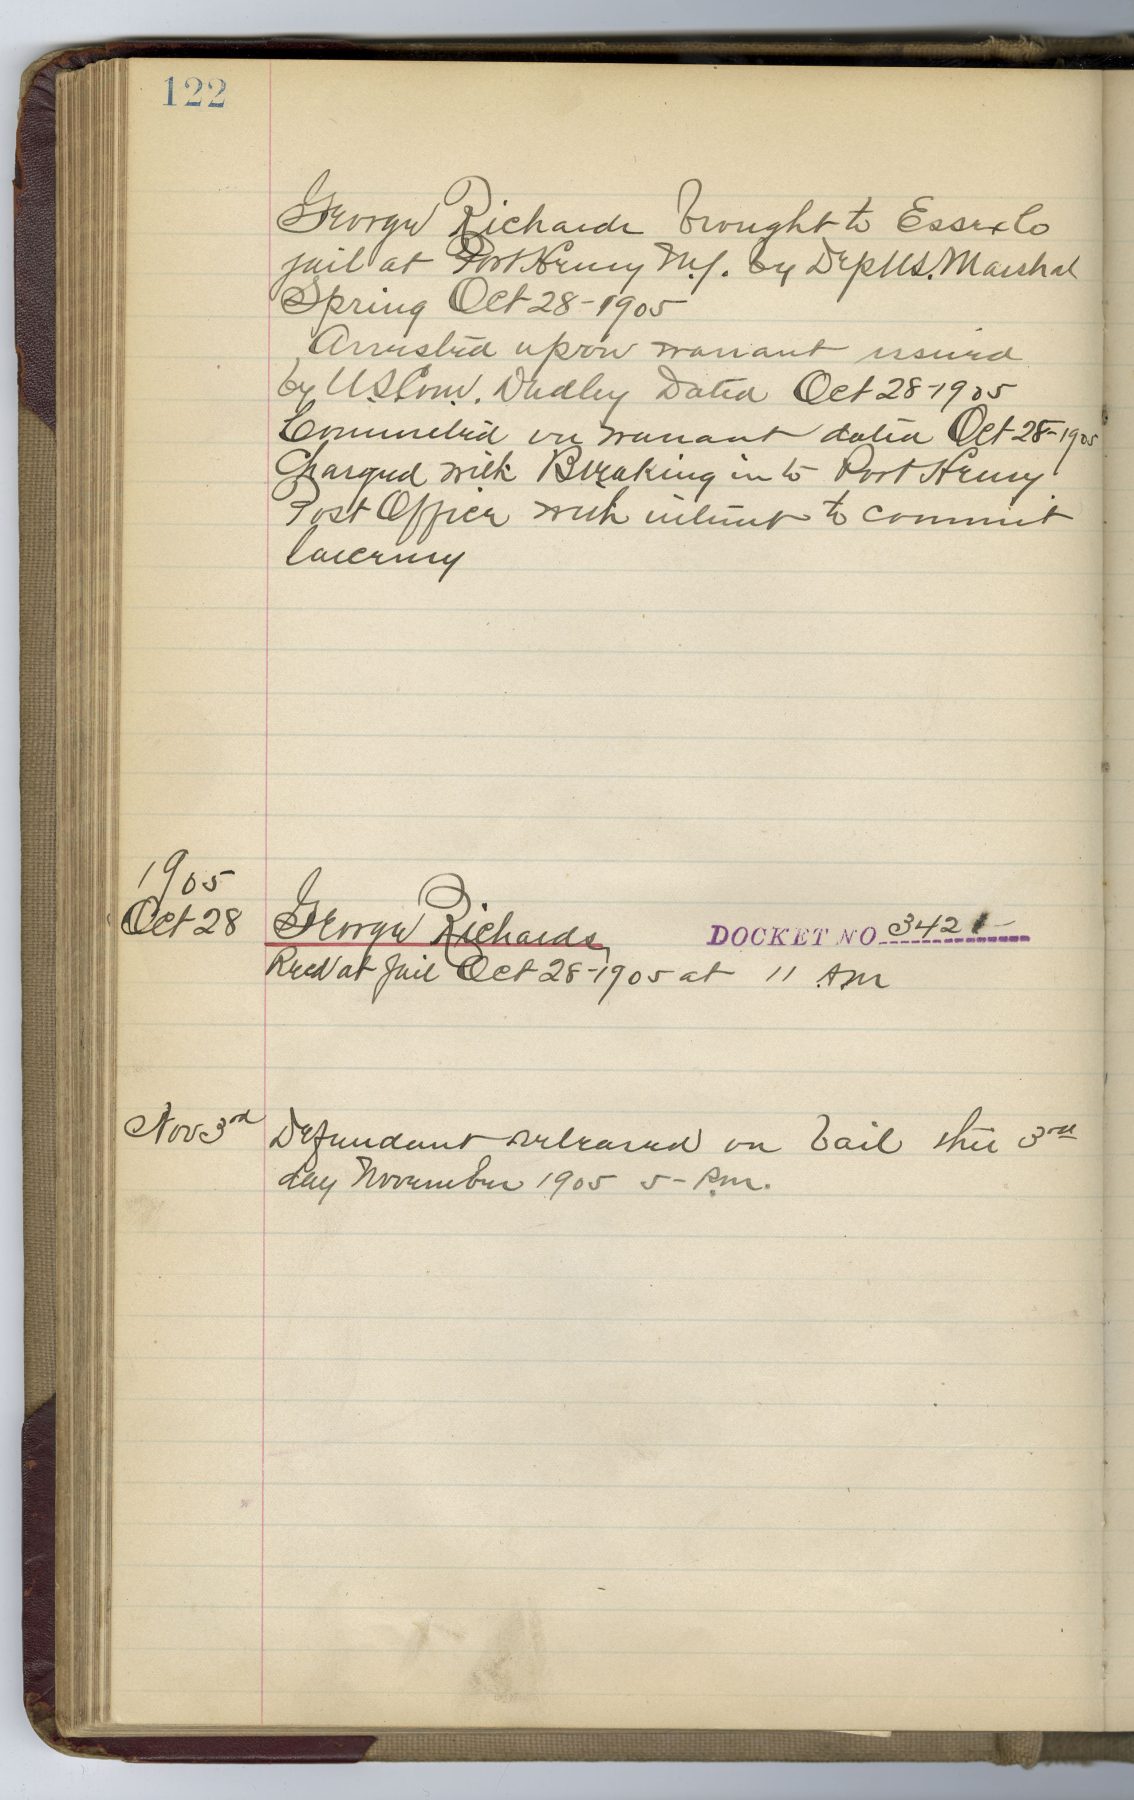 122
George Richards brought to Essex Co
jail at Port Henry N.Y. by Dep U.S. Marshal
Spring Oct 28-1905
Arrested upon warrant issued
by U.S. Com. Dudley Dated Oct 28-1905
Committed on warrant dated Oct 28-1905
Charged with Breaking in to Port Henry
Post Office with intent to commit
larceny
1905
Oct 28 George Richards DOCKET NO 3421
Recd at Jail Oct 28-1905 at 11 AM
Nov 3rd Defendant released on bail this 3rd
day November 1905 5- P.m.